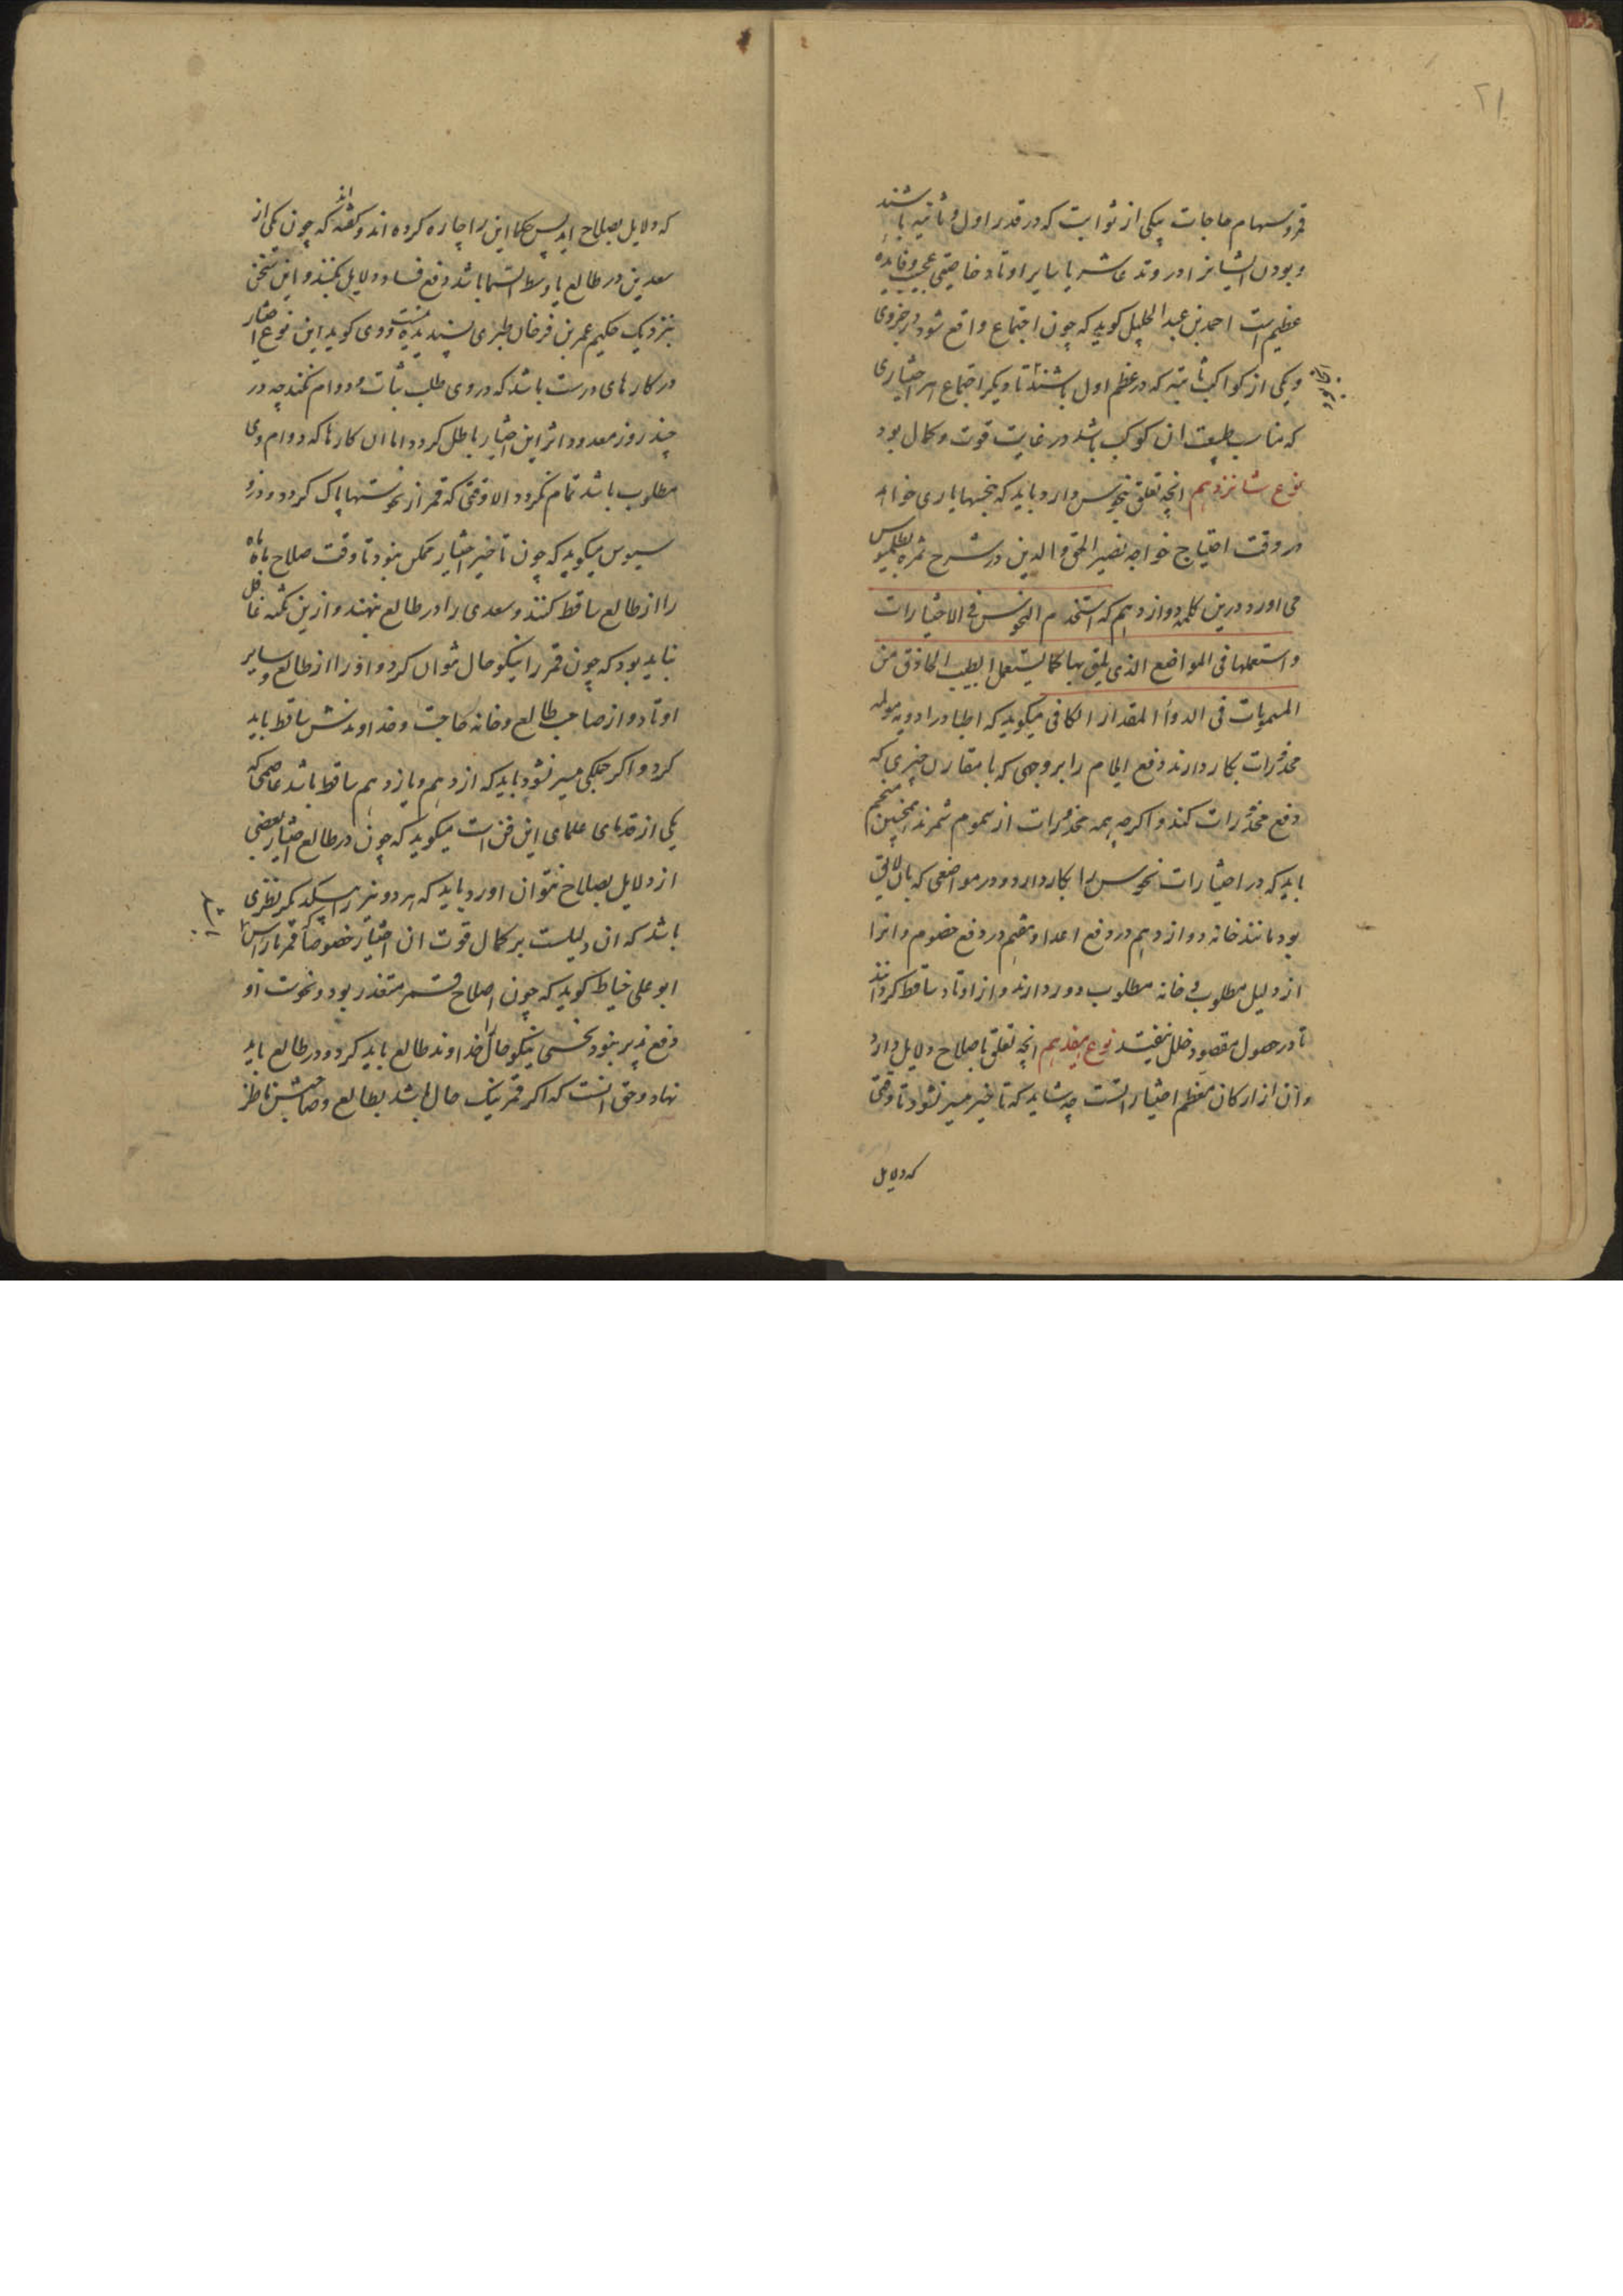 ۲۱
قمر و سهام حاجات بیکی از ثوابت که در قدر اول و ثانیه باشند
و بودن ایشانرا در وتد عاشر یا سایر اوتاد خاصیتی عجیب و فایده
عظیم است احمد بن عبد الجلیل کوید که چون اجتماع واقع شود در جزوی
و یکی از کواکب ثابته که در عظم اول باشند تا دیگر اجتماع هر اختیاری
که مناسب طبیعت ان کوکب باشد در غایت قوت و کمال بود
نوع شانزدهم انچه تعلق بنحوس دارد باید که بنحسها یاری خواهد
در وقت احتیاج خواجه نصیر الحق والدین در شرح ثمره بطلمیوس
می اورد درین کلمه دوازدهم که استخدم النحوس فی الاختیارات
واستعملها فی المواضع الذی یلیق بها کما یستعمل الطبیب الحاذق من
السمویات فی الدواء المقدار الکافی میکوید که اطبا در ادویه
مخدرات بکار دارند دفع الام را بر وجهی که با مقارن چیزی که
دفع مخدرات کند و اکرچه همه مخدرات از سموم شمرند همچنین منجم
باید که در اختیارات نحوس را بکار دارد و در مواضعی که بان لایق
بود مانند خانه دوازدهم در دفع اعدا و هفتم در دفع خصوم و انرا
از دلیل مطلوب و خانه مطلوب دور دارند و از اوتاد ساقط کردانند
تا در حصول مقصود خلل نیفتد نوع هفدهم انچه تعلق باصلاح دلایل دارد
و ان از ارکان معظم اختیار است چه شاید که تاخیر میسر نشود تا وقتی
که دلایل
که دلایل بصلاح اید پس حکما این را چاره کرده اند و کفته اند که چون یکی از
سعدین در طالع یا وسط السما باشد دفع فساد دلایل بکنند و این سخن
بنزدیک حکیم عمر بن فرخان طبری پسندیده نیست و وی کوید این نوع اختیار
در کارهای درست باشد که در وی طلب ثبات و دوام نکنند چه در
چند روز معدود اثر این اختیار باطل کردد اما ان کارها که دوام وی
مطلوب باشد تمام نکردد الا وقتی که قمر از نحوستها پاک کردد و
میکوید که چون تاخیر اختیار ممکن نبود تا وقت صلاح ماه ماه
را از طالع ساقط کنند و سعدی را در طالع نهند و ازین نکته غافل
نباید بود که چون قمر را نیکو حال نتوان کرد و او را از طالع و سایر
اوتاد و از صاحب طالع و خانه حاجت و خداوندش ساقط باید
کرد و اکر جملکی میسر نشود باید که از دهم و یازدهم ساقط باشد عاصمی که
یکی از قدمای علمای این فن است میکوید که چون در طالع اختیار بعضی
از دلایل بصلاح نتوان اورد باید که هر دو نیر را بیکدیکر نظری
باشد که ان دلیلست بر کمال قوت ان اختیار خصوصا که قمر
ابو علی خیاط کوید که چون اصلاح قمر متعذر بود و نحوست او
دفع پذیر نبود نحسی نیکو حال را خداوند طالع باید کرد و در طالع باید
نهاد و حق انست که اکر قمر نیک حال باشد بطالع و صاحبش ناظر